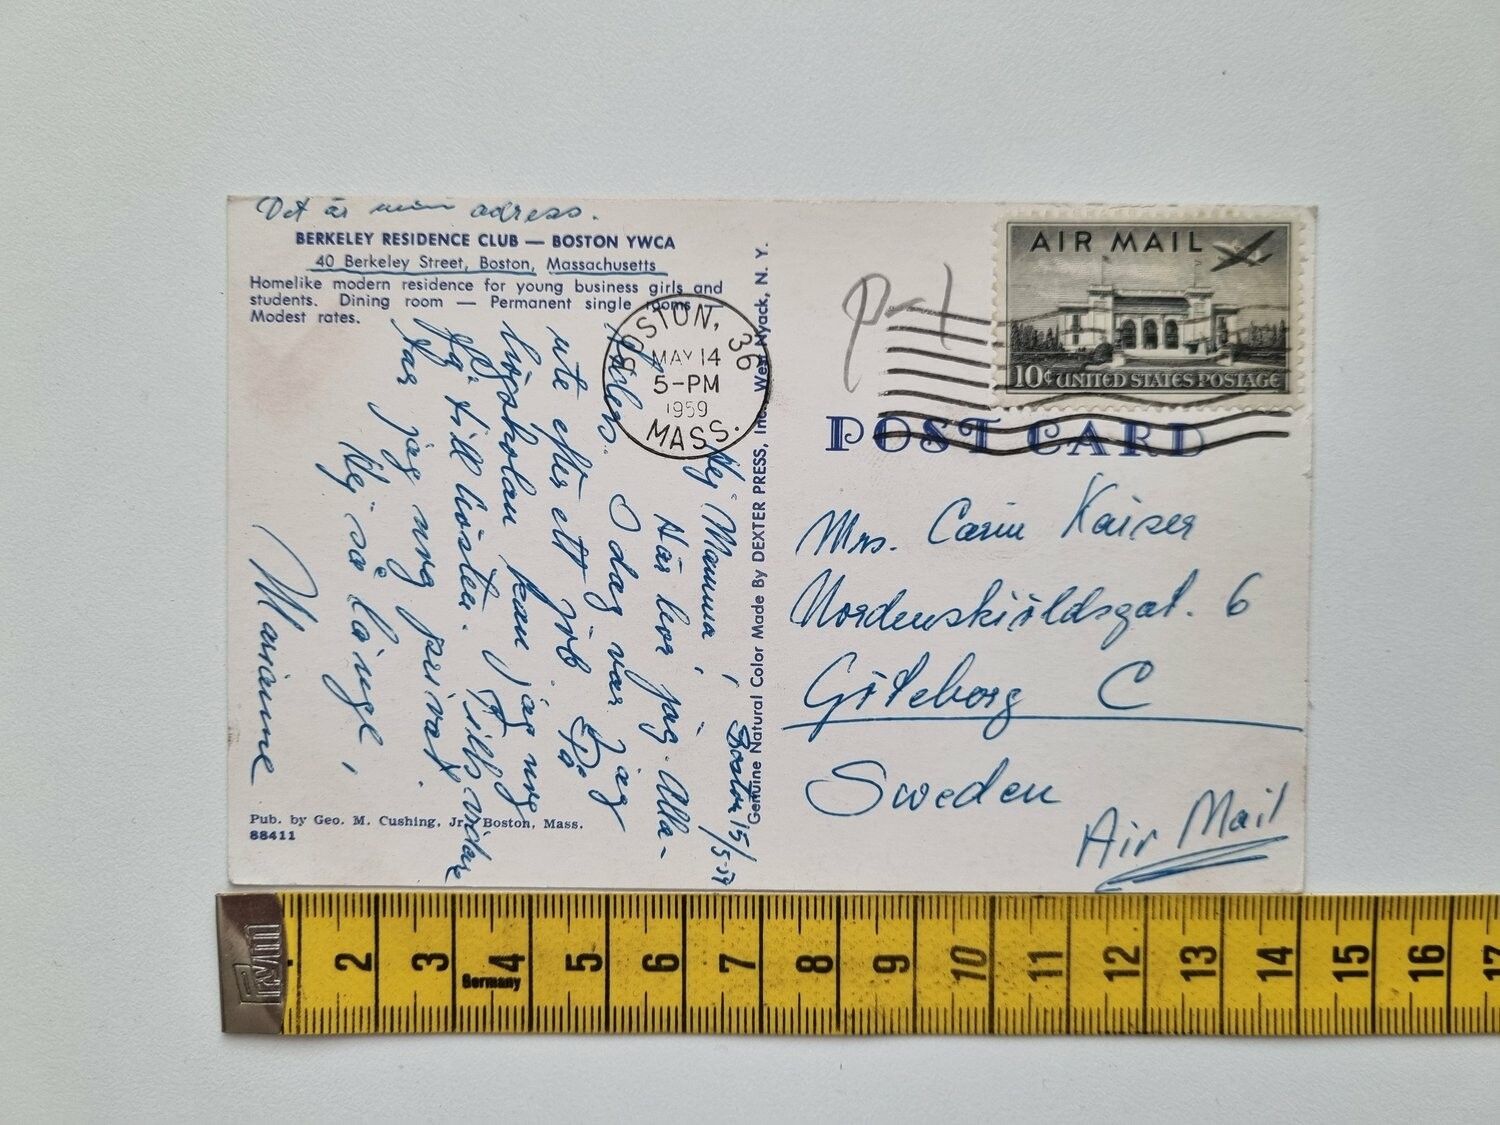 Det är min adress.
BERKELEY RESIDENCE CLUB — BOSTON YWCA
40 Berkeley Street, Boston, Massachusetts
Homelike modern residence for young business girls and
students. Dining room — Permanent single rooms —
Modest rates.
Boston 15/5-59
Hej Mamma!
Här bor jag. Alla-
I dag var jag
ute efter ett jobb. På
högskolan kan jag nog
få till hösten. Tills vidare
har jag nog privat.
Hej så länge!
Marianne
Pub. by Geo. M. Cushing, Jr., Boston, Mass.
88411
Genuine Natural Color Made By DEXTER PRESS, Inc., West Nyack, N. Y.
BOSTON, 36
MAY 14
5-PM
1959
MASS.
AIR MAIL
10¢ UNITED STATES POSTAGE
POST CARD
Mrs. Carin Kaiser
Nordenskiöldsgat. 6
Göteborg C
Sweden
Air Mail
Prym
2 3 4 5 6 7 8 9 10 11 12 13 14 15 16 17
Germany